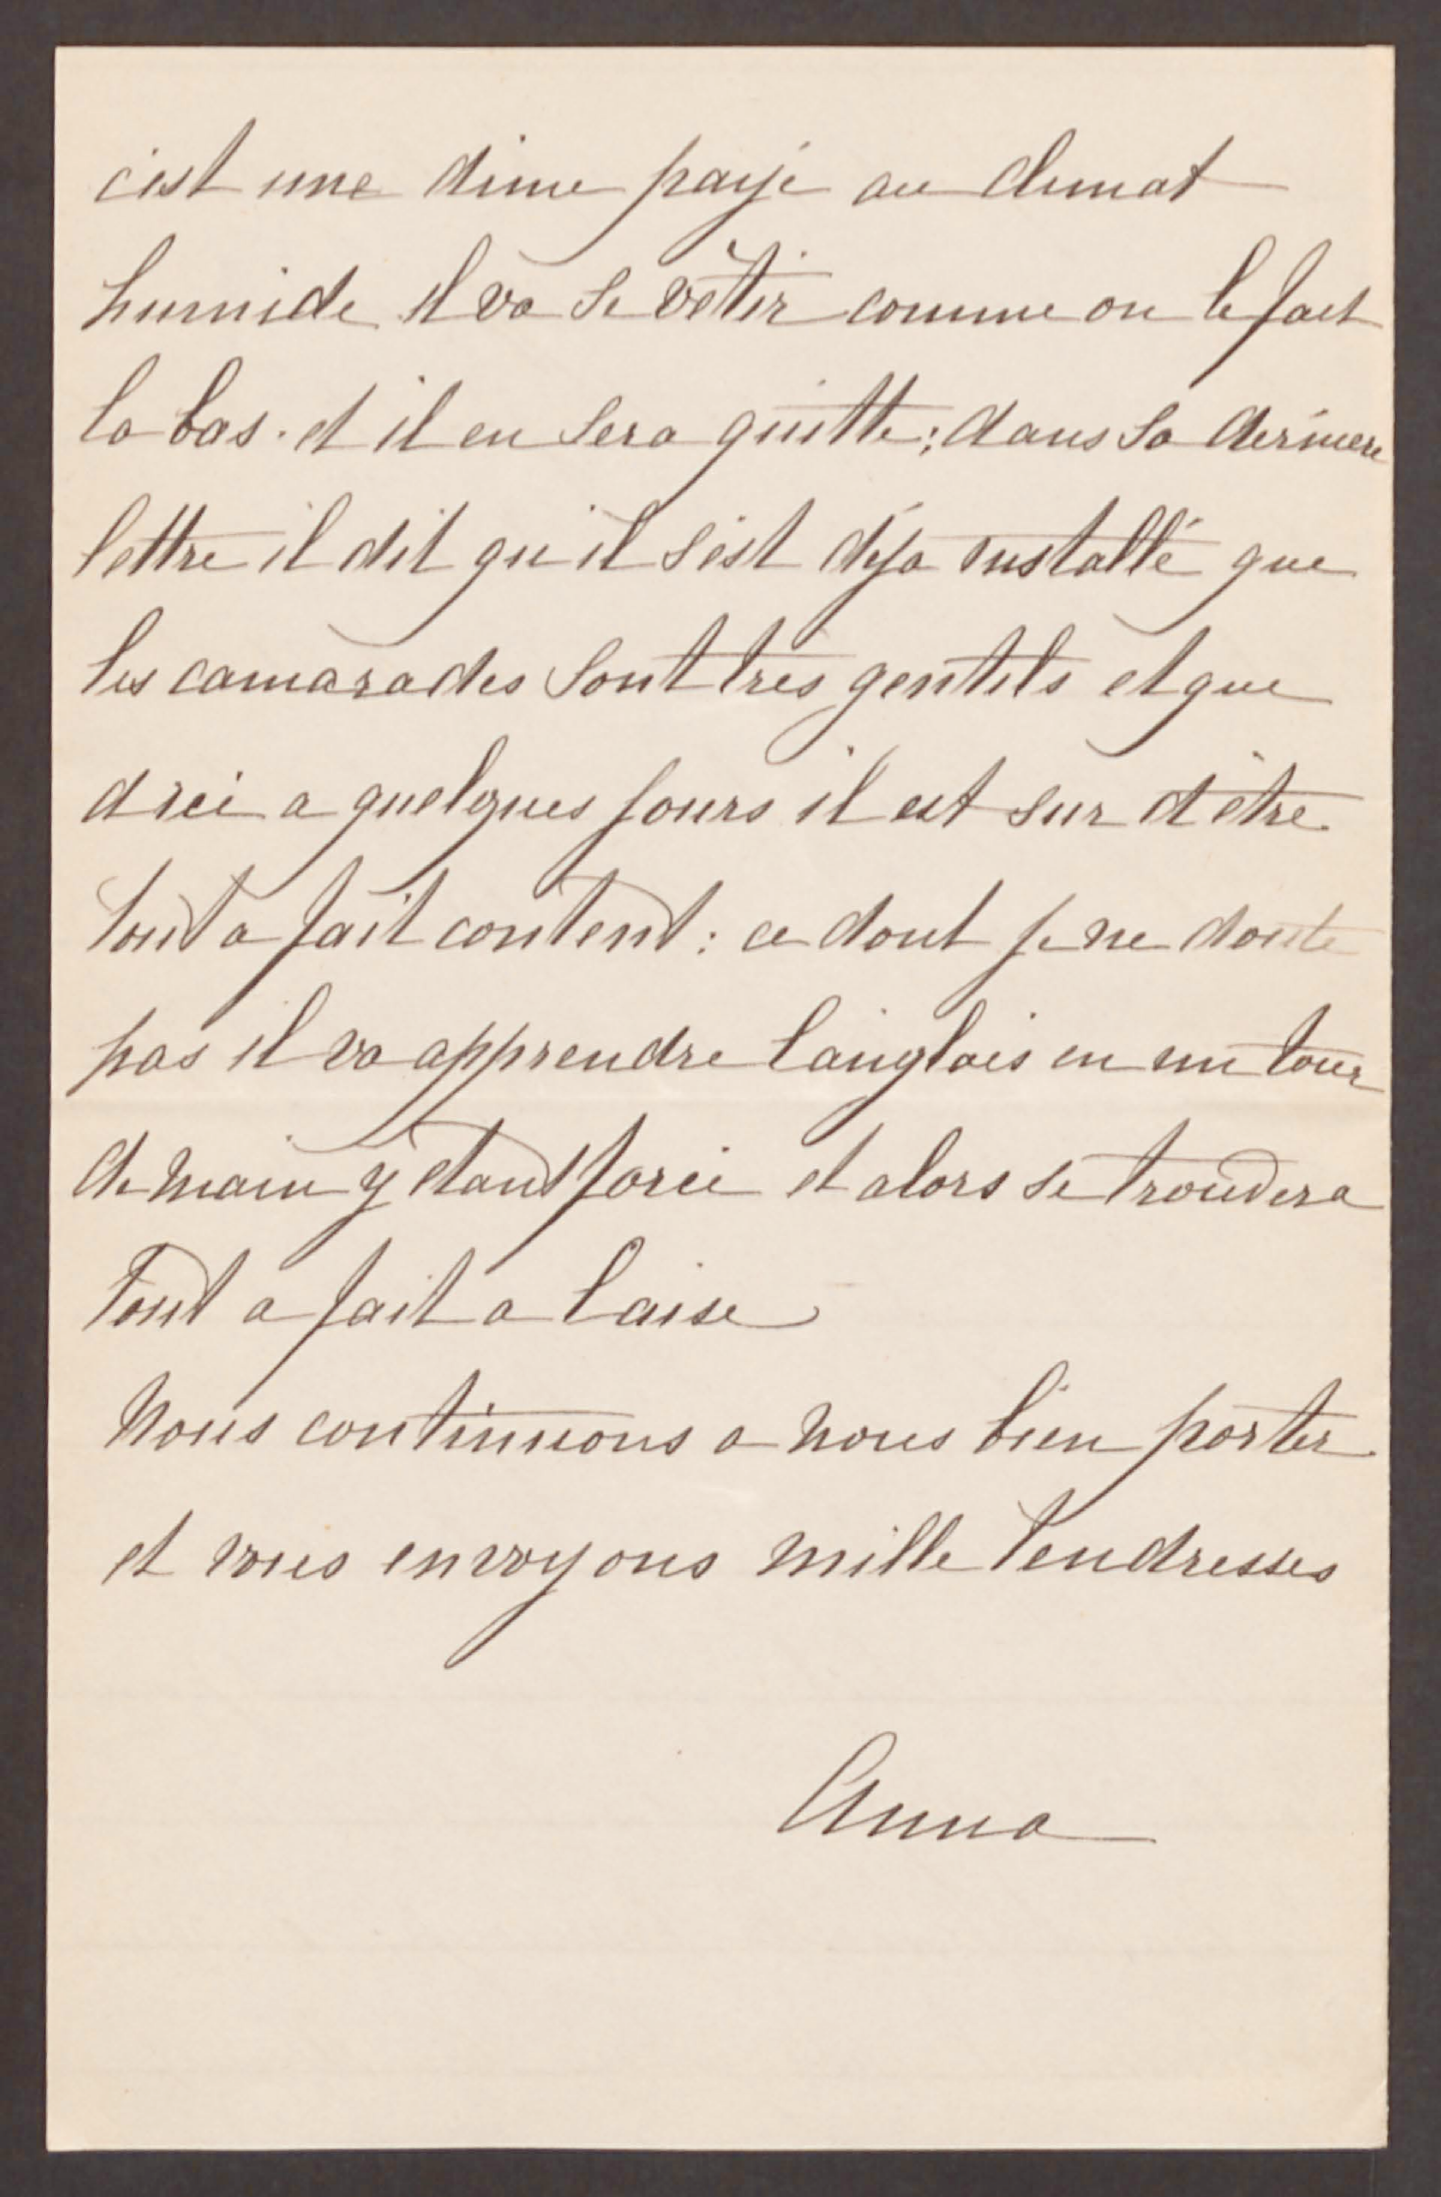 c'est une dime payé au climat
humide il va se vêtir comme on le fait
la bas. et il en sera quitte; dans sa derniere
lettre il dit qu'il s'est déja installé que
les camarades sont très gentils et que
d'ici a quelques jours il est sur d'être
tout a fait content: ce dont je ne doute
pas il va apprendre l'anglais en un tour
de main y etant forcé et alors se trouvera
Tout a fait a l'aise
Nous continuons a nous bien porter
et vous envoyons mille tendresses
Anna